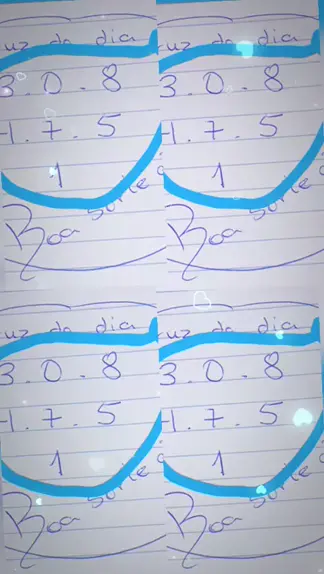 uz do dia
3.0.8
4.7.5
1
Boa sorte
uz do dia
3.0.8
4.7.5
1
Boa sorte
uz do dia
3.0.8
4.7.5
1
Boa sorte
uz do dia
3.0.8
4.7.5
1
Boa sorte